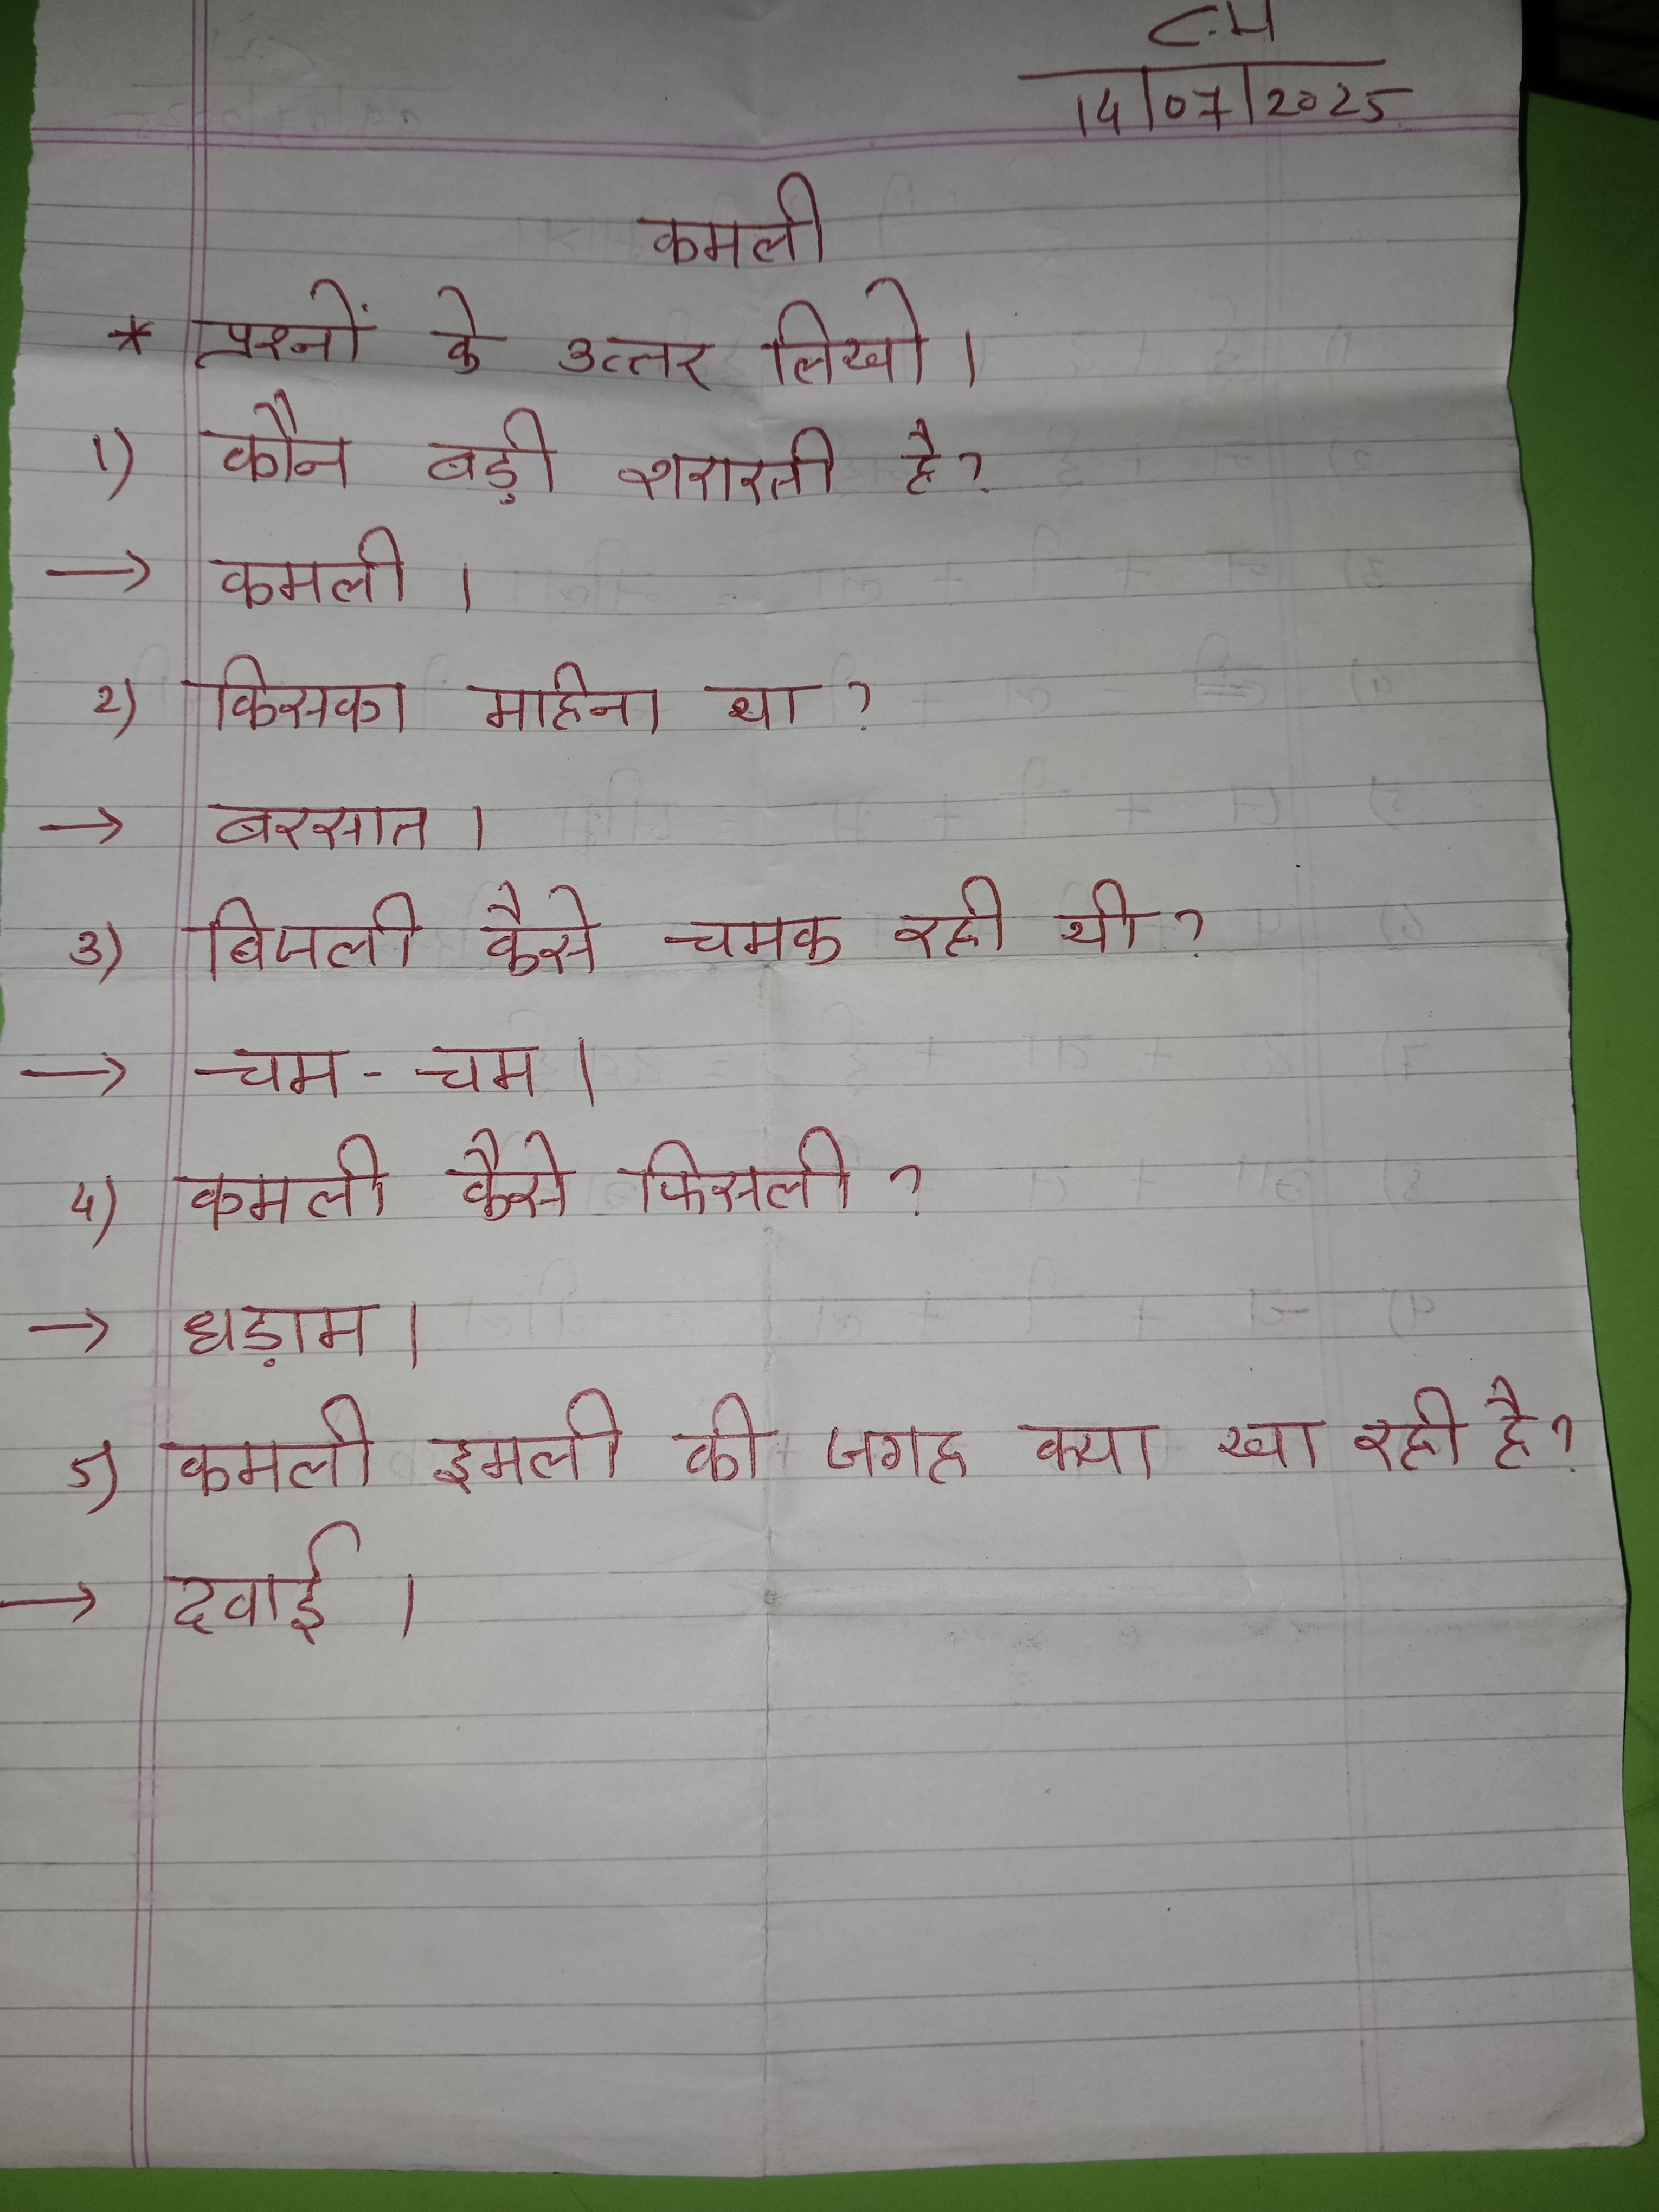 C.H
14/07/2025
कमली
* प्रश्नों के उत्तर लिखो ।
1) कौन बड़ी शरारती है?
→ कमली ।
2) किसका माहिना था ?
→ बरसात ।
3) बिजली कैसे चमक रही थी ?
→ चम - चम ।
4) कमली कैसे फिसली ?
→ धड़ाम ।
5) कमली इमली की जगह क्या खा रही है ?
→ दवाई ।